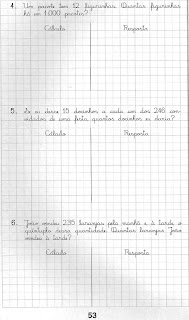 4. Um pacote tem 12 figurinhas. Quantas figurinhas
há em 1.000 pacotes?
Cálculo Resposta
5. Se eu desse 15 docinhos a cada um dos 246 con-
vidados de uma festa, quantos docinhos eu daria?
Cálculo Resposta
6. João vendeu 235 laranjas pela manhã e à tarde o
quíntuplo dessa quantidade. Quantas laranjas João
vendeu à tarde?
Cálculo Resposta
53